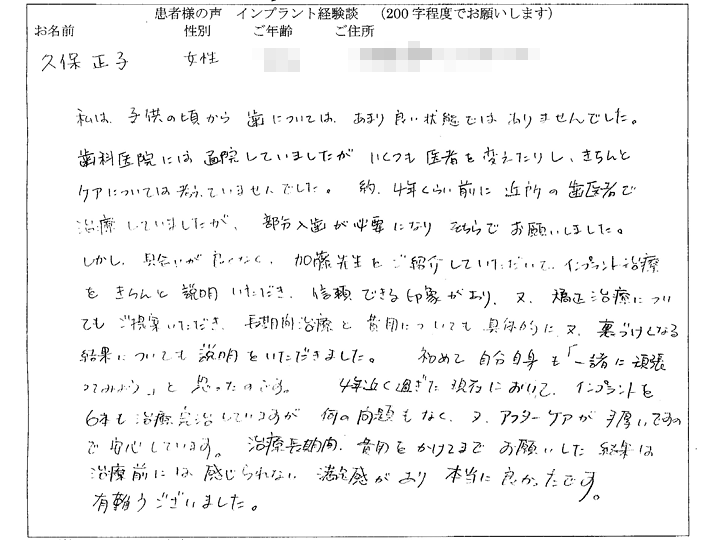 患者様の声 インプラント経験談 (200字程度でお願いします)
お名前 性別 ご年齢 ご住所
久保 正子 女性
私は、子供の頃から 歯については、あまり良い状態ではありませんでした。
歯科医院には通院していましたが いくつも 医者を変えたりし、きちんと
ケアについては考えていませんでした。 約、4年くらい前に 近所の歯医者で
治療していましたが、 部分入歯が必要になり そちらでお願いしました。
しかし、具合いが良くなく、 加藤先生をご紹介していただいて、インプラント治療
を きちんと 説明いただき、信頼できる印象があり、又、矯正治療につい
てもご提案いただき、長期間治療と費用についても具体的に、又、裏づけとなる
結果についても 説明をいただきました。 初めて 自分自身も「一緒に頑張
ってみよう」と 思ったのです。 4年近く過ぎた現在において、インプラントを
6本も治療完治していますが 何の問題もなく、又、アフターケアが手厚いですの
で 安心しています。 治療長期間、費用をかけてまで お願いした 結果は
治療前には 感じられない 満足感があり 本当に良かったです。
有難うございました。